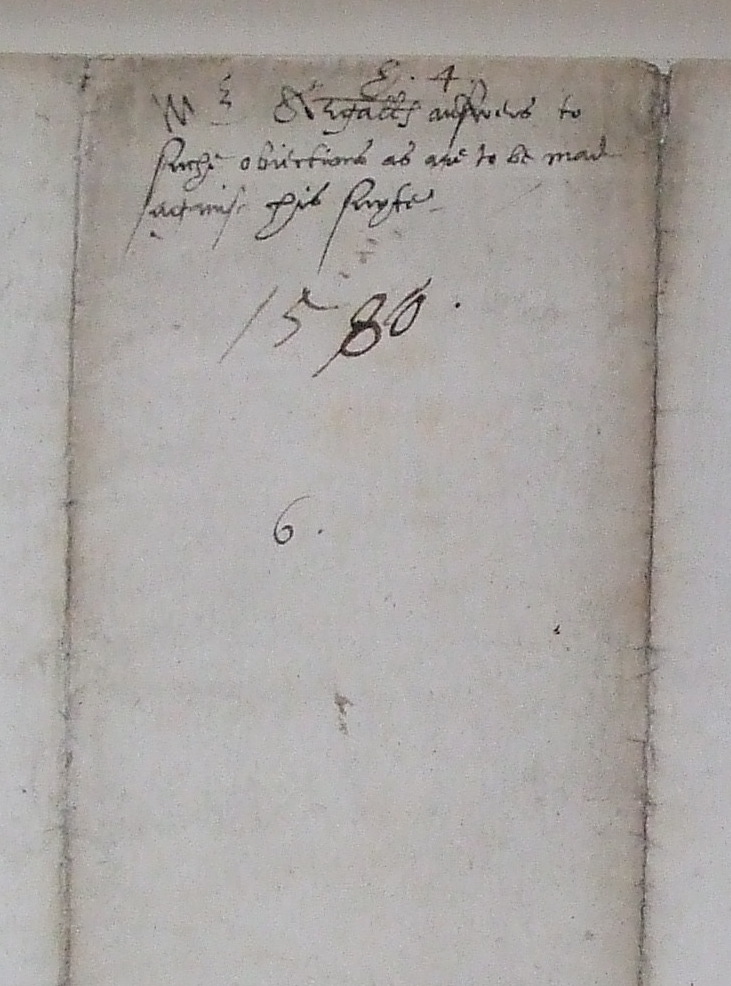 E. 4.
Mr answers to
suche obiections as are to be mad
against his suyte
1580.
6.